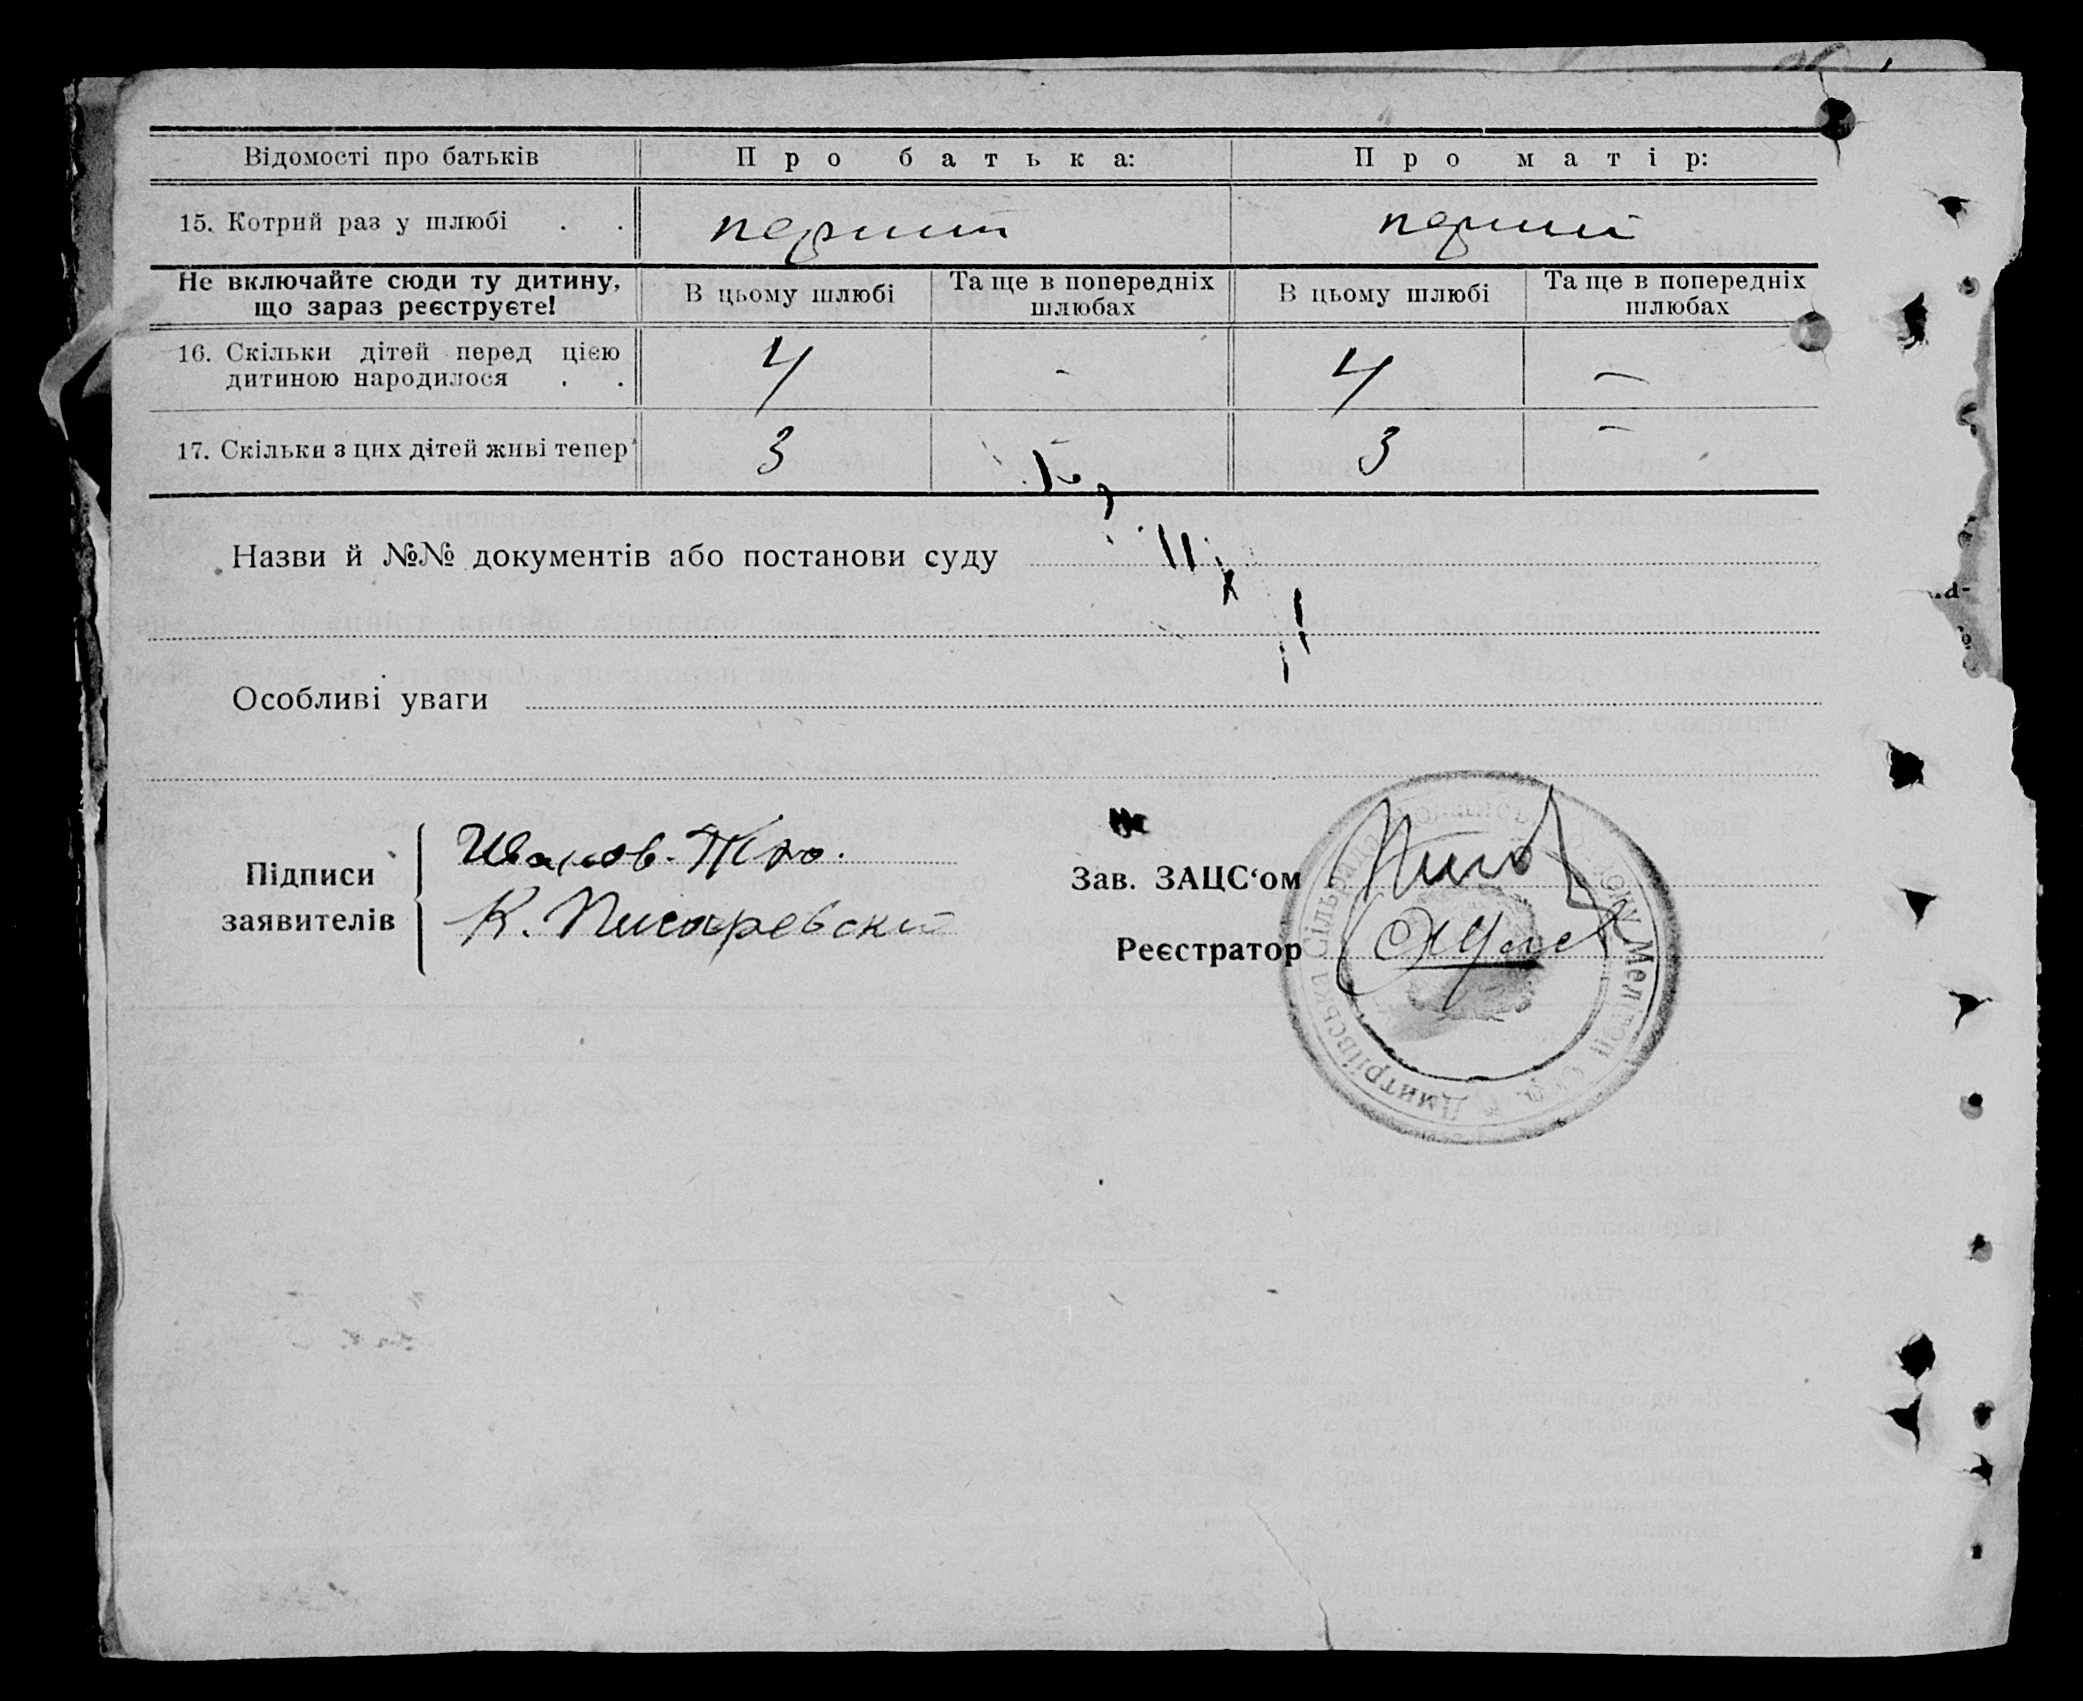 Відомості про батьків Про батька: Про матір:
15. Котрий раз у шлюбі . . перший перший
Не включайте сюди ту дитину, що зараз реєструєте!
В цьому шлюбі Та ще в попередніх шлюбах В цьому шлюбі Та ще в попередніх шлюбах
16. Скільки дітей перед цією
дитиною народилося . . 4 - 4 —
17. Скільки з цих дітей живі тепер 3 - 3 —
Назви й №№ документів або постанови суду
Особливі уваги
Підписи
заявителів
К. Писаревский
Зав. ЗАЦС‘ом
Реєстратор
Дмитрівська Сільрада